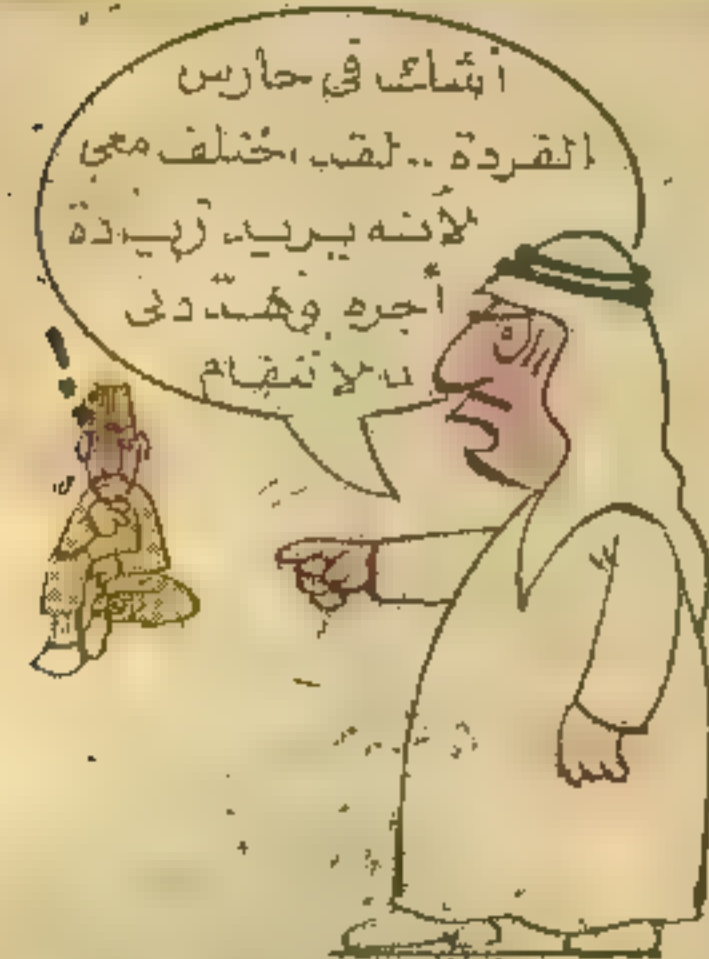 أشك في حارس
القردة .. لقد اختلف معي
لأنه يريد زيادة
أجره وهددني
بالانتقام